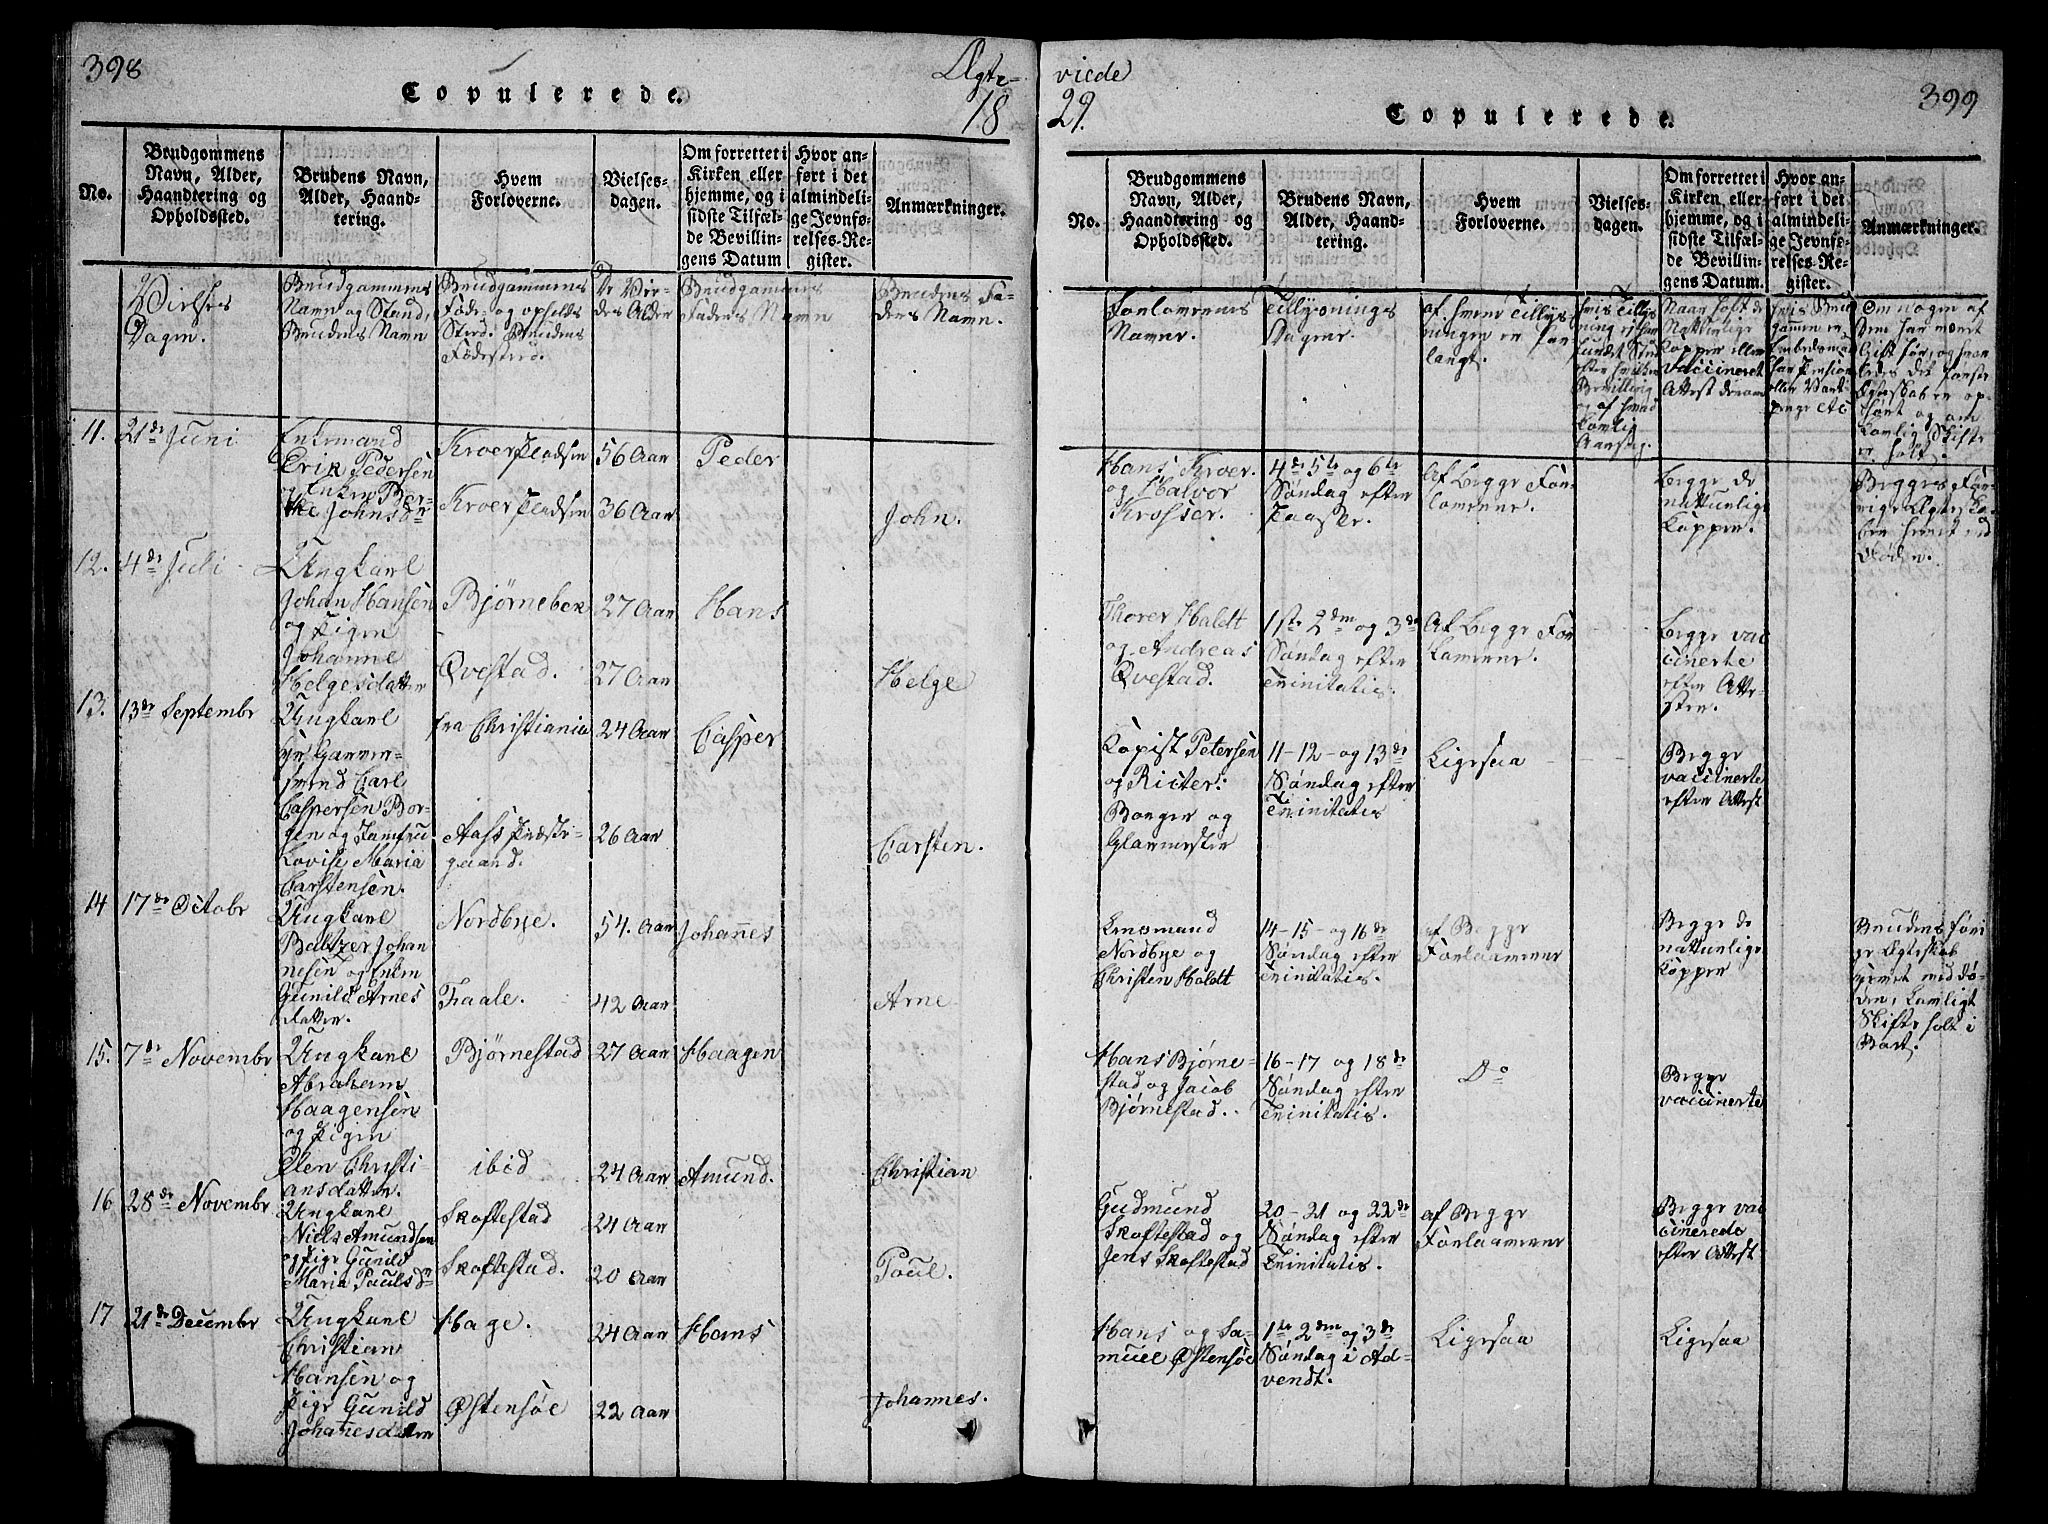 398
Copulerede.
Ægte-
18
No.
Brudgommens
Navn, Alder,
Haandtering og
Opholdssted.
Brudens Navn,
Alder, Haand-
tering.
Hvem
Forloverne.
Vielses-
dagen.
Om forrettet i
Kirken eller
hjemme, og i
sidste Tilfæl-
de Bevillin-
gens Datum
Hvor an-
ført i det
almindeli-
ge Jevnfø-
relses-Re-
gister.
Anmærkninger.
Vielses
Dagen.
Brudgommens
Navn og Stand,
Brudens Navn
Brudgommens
Føde- og opholds
Sted. Brudens
Fødested.
De Vie-
des Alder
Brudgommens
Faders Navn
Brudens Fa-
ders Navn.
11.
21de Juni
Enkemand
Erik Pedersen
og Enken Ber-
the Johnsdr
Kroer Pladsen
Kroer Pladsen
56 Aar
36 Aar
Peder
John.
12.
4de Juli
Ungkarl
Johan Hansen
og Pigen
Johanne
Helgesdatter
Bjørnebek
Qvestad.
27 Aar
27 Aar
Hans
Helge
13.
13de Septembr
Ungkarl
Carl
Caspersen Bor-
gen og Jomfru
Lovise Maria
Carstensen.
fra Christiania
Aass Præste-
gaard.
24 Aar
26 Aar
Casper
Carsten.
14
17de Octobr
Ungkarl
Baltzer Johan
nesen og Enken
Gunild Arnes
datter.
Nordbye.
Faale.
54. Aar
42 Aar
Johannes
Arne
15.
7de Novembr
Ungkarl
Abraham
Haagensen
og Pigen
Olen Christi-
ansdatter.
Bjørnestad
ibid
27 Aar
24 Aar
Haagen
Christian
16
28de Novembr
Ungkarl
Niels Amundsen
og Pige Gunild
Maria Paulsdr
Skoftestad
Skoftestad.
24 Aar
20 Aar
Amund.
Poul.
17
21de Decembr
Ungkarl
Christian
Hansen og
Pige Gunild
Johanesdatter
Hage.
Østensøe
24 Aar
22 Aar
Hans
Johannes.
viede
29.
Copulerede.
399
No.
Brudgommens
Navn, Alder,
Haandtering og
Opholdssted.
Brudens Navn,
Alder, Haand-
tering.
Hvem
Forloverne.
Vielses-
dagen.
Om forrettet i
Kirken eller
hjemme, og i
sidste Tilfæl-
de Bevillin-
gens Datum.
Hvor an-
ført i det
almindeli-
ge Jevnfø-
relses-Re-
gister.
Anmærkninger.
Forlovernes
Navne.
Tillysnings
Dagene.
af hvem Tillys
ningen er for
langt.
Hvis Tillys
ning ej har
fundet Sted
efter hvilken
Bevilling
og af hvad
lovlig
Aarsag.
Naar havt de
Nattürlige
Kopper eller
vaccineret
Attest derom
Hvis Brud
gommen er
Embedsmand
har Pension
eller Vart-
penge etc
Om nogen af
dem har været
Gift før, og hvor
ledes det første
Egteskab er op-
hørt og om
lovlig Skifte
er holt.
Hans Kroer.
og Halvor
Krosser.
4de 5te og 6te
Søndag efter
Paaske.
Af begge For-
loverne.
Begge de
nattürlige
Kopper.
Begges For-
rige Ægteska-
ber hævet ved
Døden.
Thorer Haldt
og Andreas
Qvestad.
1ste 2den og 3de
Søndag efter
Trinitatis.
Af begge For
loverne.
Begge vac
cinerte
efter Atte-
ster.
Kopist Petersen
og Ricter:
Borger og
Glarmester
11-12- og 13de
Søndag efter
Trinitatis
Ligesaa
Begge
vaccinerte
efter Attest
Lensmand
Nordbye og
Christen Holdt
14-15- og 16de
Søndag efter
Trinitatis.
af Begge
Forloverne
Begge de
nattürlige
Kopper
Brudens fori
ge Ægteskab
hævet med Dø-
den, lovligt
Skifte holt i
Boet.
Hans Bjørne-
stad og Jacob
Bjørnestad.
16-17 og 18de
Søndag efter
Trinitatis.
Do
Begge
vaccinerte
Gudmund
Skoftestad og
Jens Skoftestad
20-21 og 22de
Søndag efter
Trinitatis.
af Begge
Forloverne
Begge vac
cinerede
efter Attest
Hans og Sa-
muel Østensøe
1ste 2den og 3de
Søndag i Ad-
vendt.
Ligesaa
Ligesaa